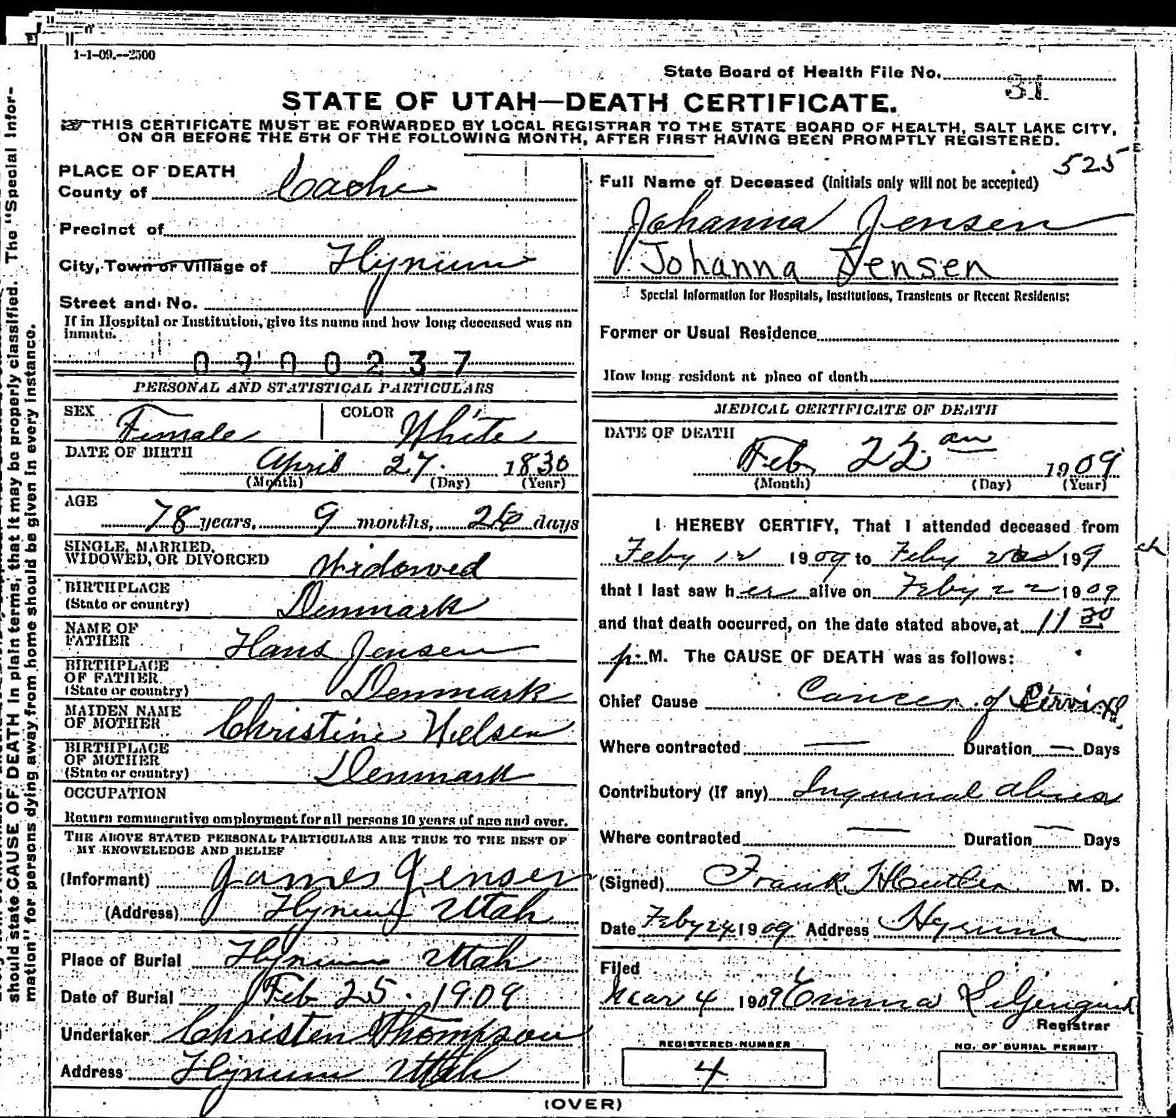 1-1-09.—2500
State Board of Health File No. 31
STATE OF UTAH—DEATH CERTIFICATE.
THIS CERTIFICATE MUST BE FORWARDED BY LOCAL REGISTRAR TO THE STATE BOARD OF HEALTH, SALT LAKE CITY,
ON OR BEFORE THE 5TH OF THE FOLLOWING MONTH, AFTER FIRST HAVING BEEN PROMPTLY REGISTERED.
525
PLACE OF DEATH
County of Cache
Precinct of
City, Town or Village of Hyrum
Street and No.
If in Hospital or Institution, give its name and how long deceased was an
inmate.
0900237
PERSONAL AND STATISTICAL PARTICULARS
SEX Female COLOR White
DATE OF BIRTH April 27. 1830
(Month) (Day) (Year)
AGE
78 years, 9 months, 26 days
SINGLE, MARRIED,
WIDOWED, OR DIVORCED Widowed
BIRTHPLACE
(State or country) Denmark
NAME OF
FATHER Hans Jensen
BIRTHPLACE
OF FATHER
(State or country) Denmark
MAIDEN NAME
OF MOTHER Christine Nielsen
BIRTHPLACE
OF MOTHER
(State or country) Denmark
OCCUPATION
Return remunerative employment for all persons 10 years of age and over.
THE ABOVE STATED PERSONAL PARTICULARS ARE TRUE TO THE BEST OF
MY KNOWELEDGE AND BELIEF
(Informant) James Jensen
(Address) Hyrum Utah
Place of Burial Hyrum Utah
Date of Burial Feb 25. 1909
Undertaker Christen Thompson
Address Hyrum Utah
Full Name of Deceased (Initials only will not be accepted)
Johanna Jensen
Johanna Jensen
Special Information for Hospitals, Institutions, Transients or Recent Residents:
Former or Usual Residence
How long resident at place of death
MEDICAL CERTIFICATE OF DEATH
DATE OF DEATH
Feb 22 1909
(Month) (Day) (Year)
I HEREBY CERTIFY, That I attended deceased from
Feby 12 1909 to Feby 199
that I last saw her alive on Feby 22 1909
and that death occurred, on the date stated above, at 11 30
p. M. The CAUSE OF DEATH was as follows:
Chief Cause Cancer of
Where contracted — Duration — Days
Contributory (If any) Inguinal
Where contracted — Duration — Days
(Signed) Frank M. D.
Date Feby 24 1909 Address Hyrum
Filed
Mar 4 1909 Emma
Registrar
REGISTERED NUMBER
4
NO. OF BURIAL PERMIT
(OVER)
should state CAUSE OF DEATH in plain terms, that it may be properly classified. The "Special Infor-
mation" for persons dying away from home should be given in every instance.